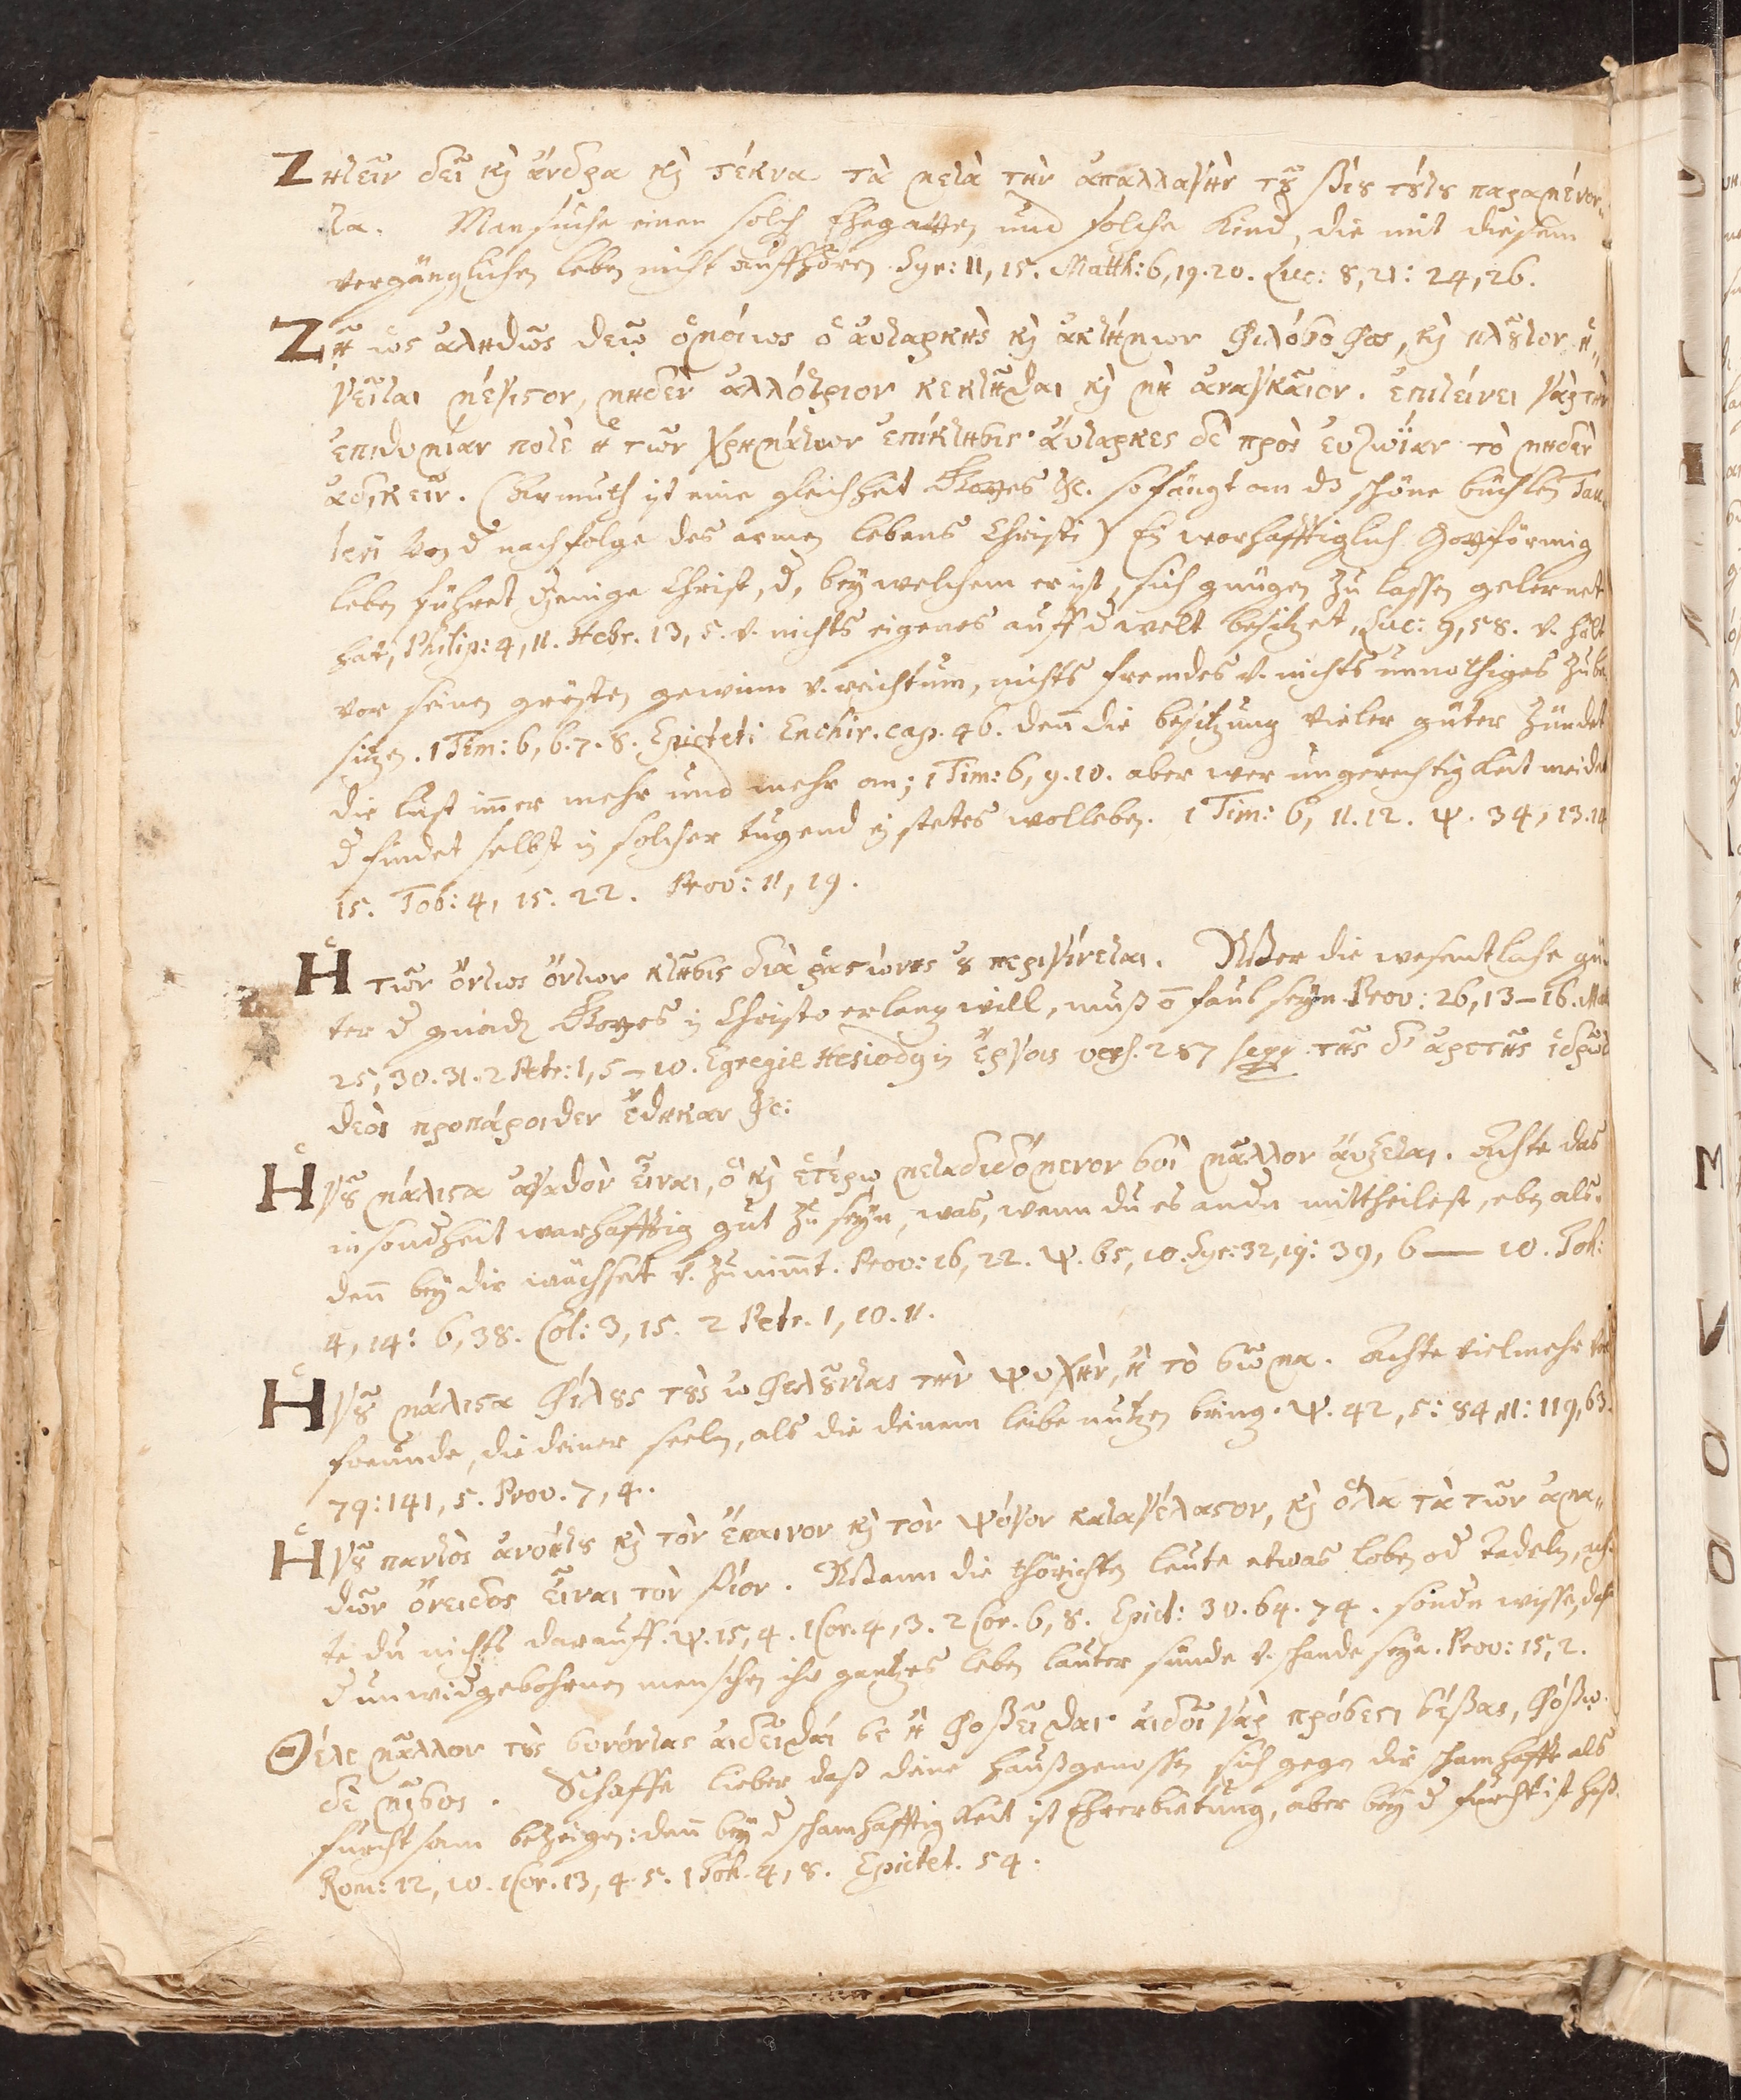 Ζητεῖν δεῖ καὶ ἄνδρα καὶ τέκνα τὰ μετὰ τὴν ἀπαλλαγὴν τοῦ βίου τούτου παραμένον„
τα. Man suche einen solch Ehegatten und solche Kind, die mit diesem
vergänglichen leben nicht auffhören Syr: 11, 15. Matth: 6, 19. 20. Luc: 8, 21: 24, 26.
Ζῇ ὡς ἀληθῶς θεῷ ὁμοίως ὁ ἀυτάρκης καὶ ἀκτήμων φιλόσοφος, καὶ πλοῦτον ἡ„
γεῖται μέγιστον, μηδὲν ἀλλότριον κεκτῆσθαι καὶ μὴ ἀναγκαῖον. ἐπιτείνει γὰρ τὴν
ἐπιθυμίαν ποτὲ ἡ τῶν χρημάτων ἐπίκτησις· ἄυταρκες δὲ πρὸς ἐυζωΐαν τὸ μηδὲν
ἀδικεῖν. (Armuth ist eine gleichheit Gottes &c. so fängt an dz schöne büchlein Tau„
leri von d nachfolge des armen lebens Christi) Ein warhafftiglich Gottförmig
leben führet djenige Christ, d, bey welchem er ist, sich gnügen zu lassen gelernet
hat, Philip: 4, 11. Hebr. 13, 5. v. nichts eigenes auff d welt besitzet, Luc: 9, 58. v. hält
vor seinen grösten gewinn v. reichtum, nichts fremdes v. nichts unnothiges zu be„
sitzen. 1 Tim: 6, 6. 7. 8. Epicteti Enchir. cap. 46. denn die besitzung vieler güter zündet
die lust immer mehr und mehr an; 1 Tim: 6, 9. 10. aber wer ungerechtigkeit meidet
d findet selbst in solcher tugend ein stetes wolleben. 1 Tim: 6, 11. 12. ψ. 34, 13. 14
15. Tob: 4, 15. 22. Prov: 11, 19.
Ἡ τῶν ὄντως ὄντων κτῆσις διὰ ῥᾳστώνης οὐ περιγίνεται. Wer die wesentliche gü„
ter d gnaden Gottes in Christo erlangen will, muß nicht faul seyn Prov: 26, 13–16. Mat
25, 30. 31. 2 Petr: 1, 5–10. Egregie Hesiodus in ἔργοις vers. 287 seqq. τῆς δ' ἀρετῆς ἱδρῶτα
θεοὶ προπάροιθεν ἔθηκαν &c:
Ἡγοῦ μάλιστα ἀγαθὸν εἶναι, ὃ καὶ ἑτέρῳ μεταδιδόμενον σοὶ μᾶλλον ἀύξεται. Achte das
insondheit warhafftig gut zu seyn, was, wenn du es andn mittheilest, eben als„
denn bey dir wächset v. zunimmt. Prov: 16, 22. ψ. 65, 10. Syr: 32, 19: 39, 6 — 10. Joh:
4, 14: 6, 38. Col: 3, 15. 2 Petr. 1, 10. 11.
Ἡγοῦ μάλιστα φίλους τοὺς ὠφελοῦντας τὴν ψυχὴν, ἢ τὸ σῶμα. Achte vielmehr vor
freunde, die deiner seelen, als die deinem leibe nutzen bring. ψ. 42, 5: 84, 11: 119, 63.
79: 141, 5. Prov. 7, 4.
Ἡγοῦ παντὸς ἀνοήτου καὶ τὸν ἔπαινον καὶ τὸν ψόγον καταγέλαστον, καὶ ὅλα τὰ τῶν ἀμα„
θῶν ὄνειδος εἶναι τὸν βίον. Wann die thörichten leute etwas loben od tadeln, ach„
te du nichts darauff. ψ. 15, 4. 1 Cor. 4, 3. 2 Cor. 6, 8. Epict: 30. 64. 74. sondn wisse, daß
d unwidgebohrnen menschen ihr gantzes leben lauter sünde v. schande seyn. Prov: 15, 2.
Θέλε μᾶλλον τοὺς συνόντας ἀιδεῖσθάι σε ἢ φοβεῖσθαι· ἀιδοῖ γὰρ πρόσεστι σέβας, φόβῳ
δὲ μῖσος. Schaffe lieber daß deine haußgenossen sich gegen dir schamhafft als
furchtsam bezeigen: denn bey d schamhafftigkeit ist Ehrerbietung, aber bey d furcht ist haß
Rom: 12, 10. 1 Cor. 13, 4. 5. 1 Joh. 4, 8. Epictet. 54.